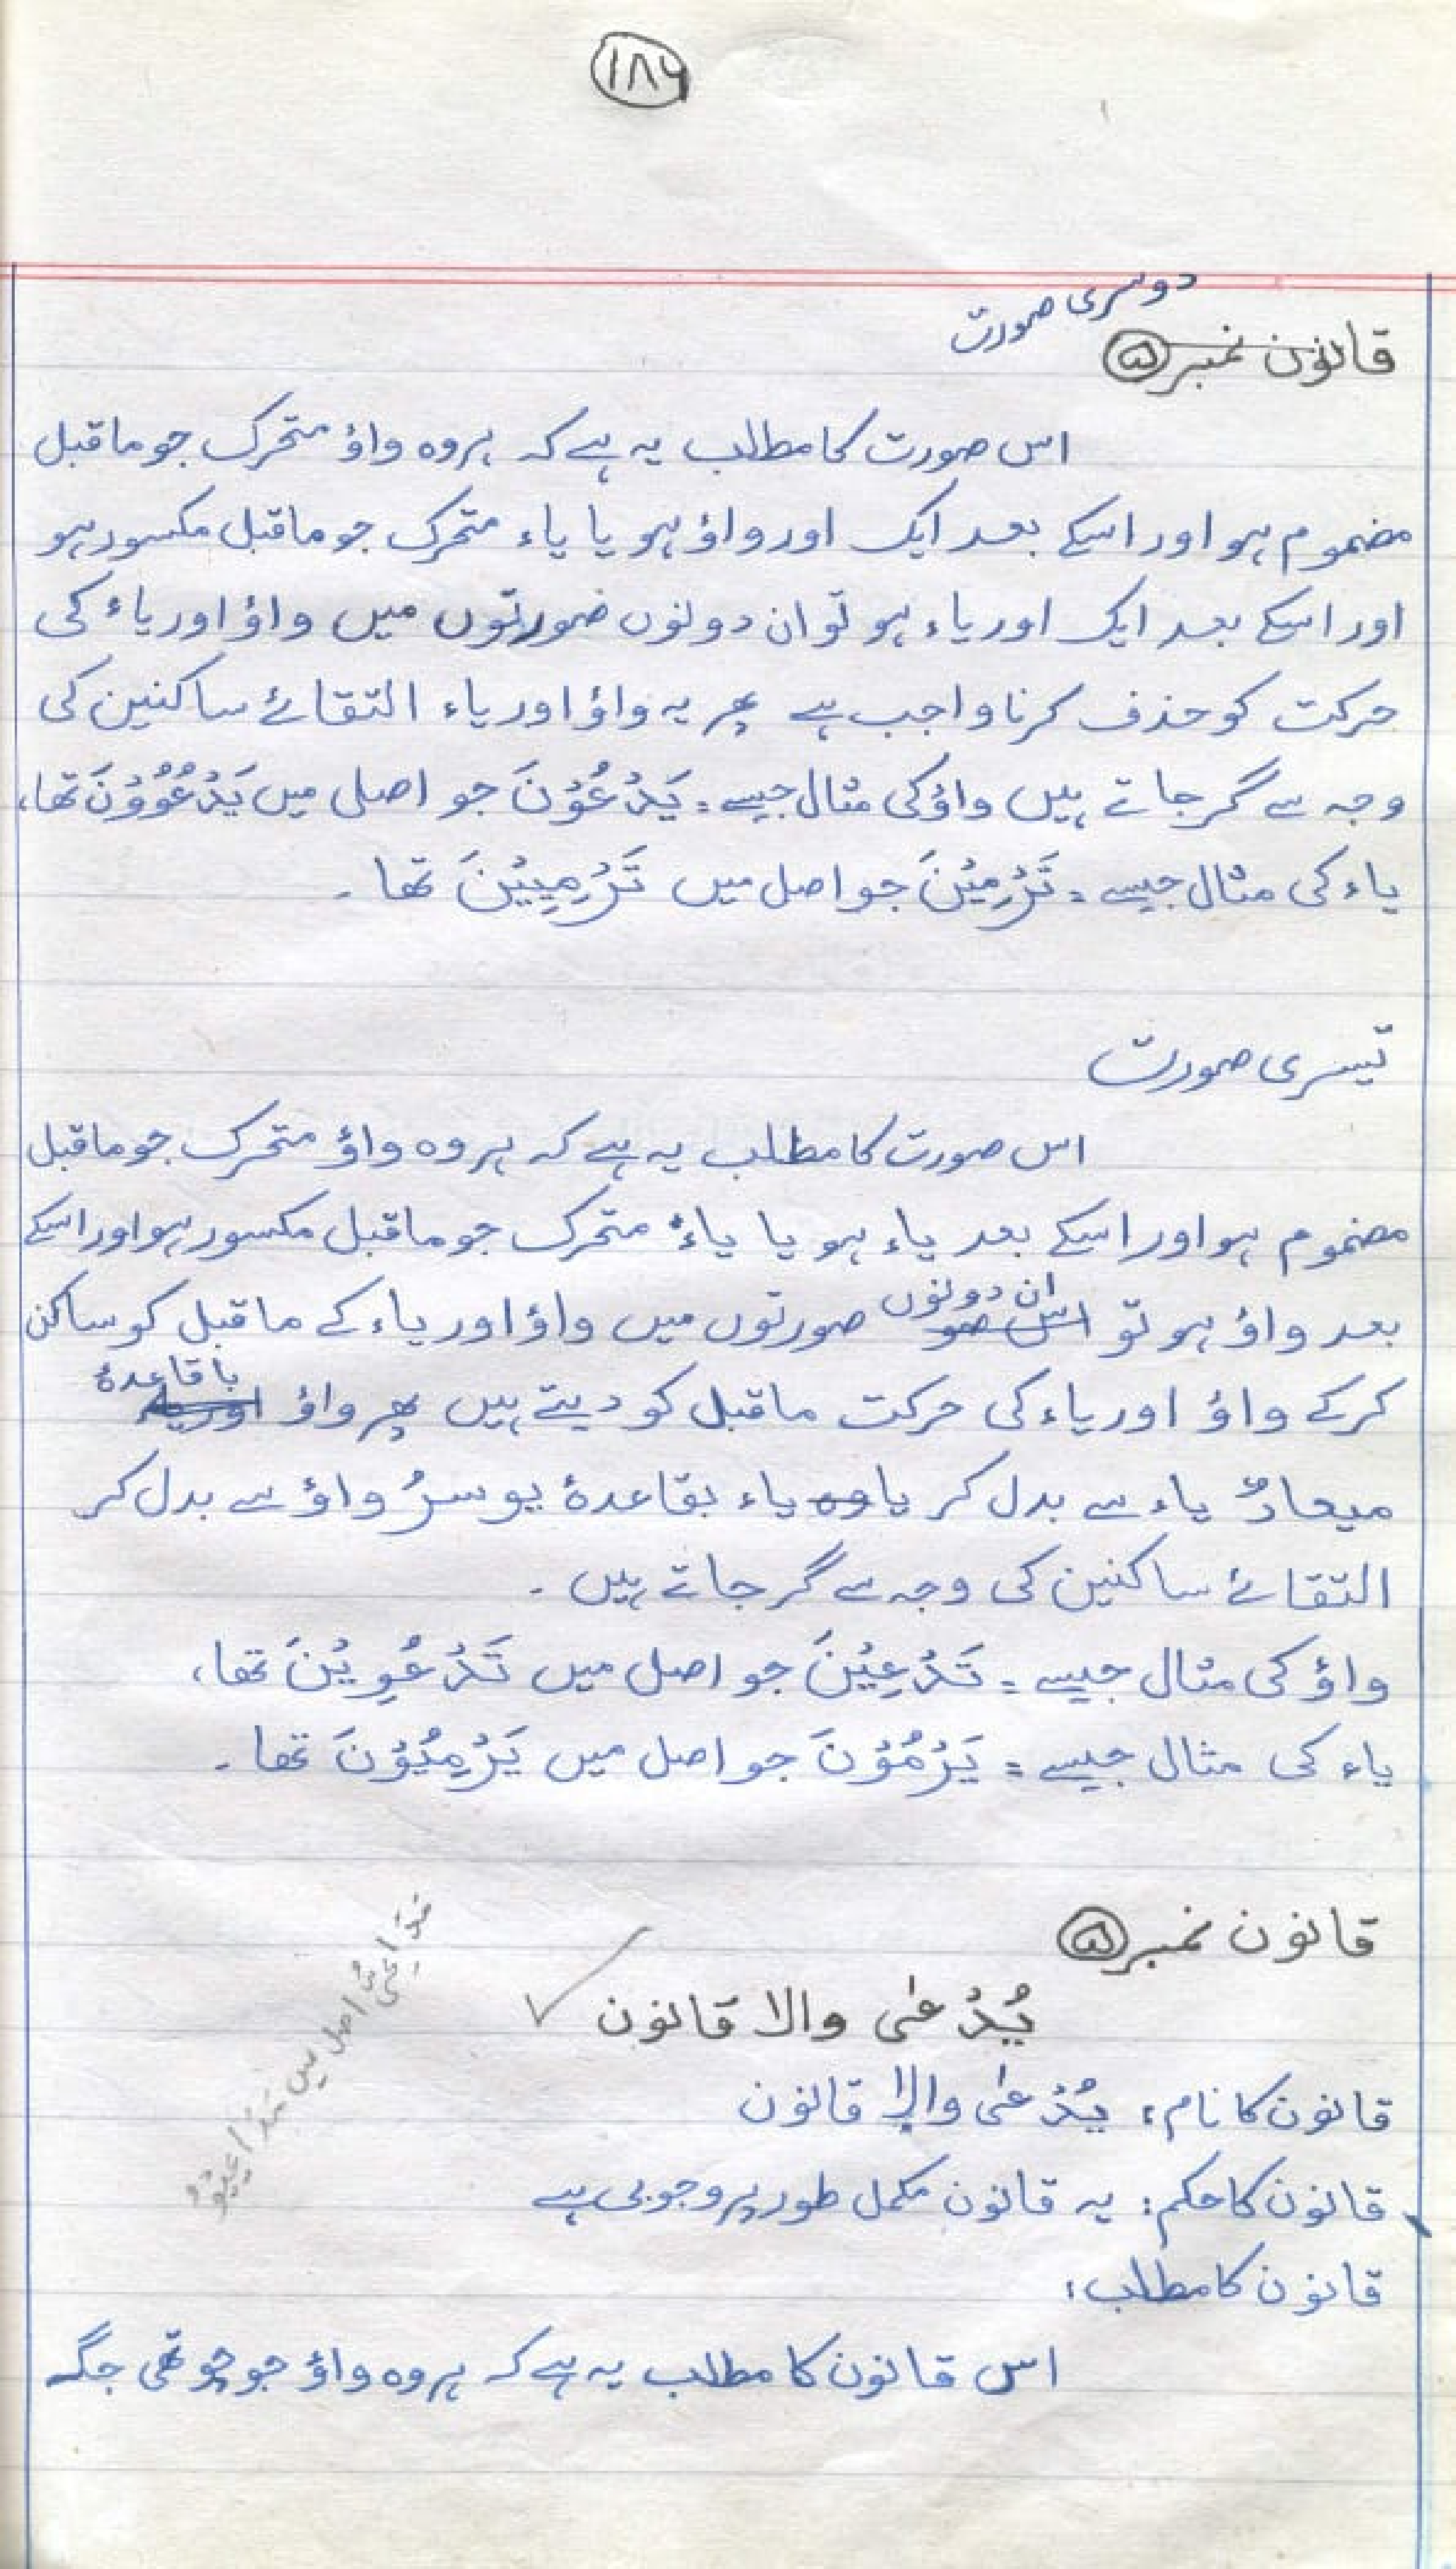 ۱۸۶
دوسری صورت
قانون نمبر ۵
اس صورت کا مطلب یہ ہے کہ ہر وہ واؤ متحرک جو ماقبل
مضموم ہو اور اسکے بعد ایک اور واؤ ہو یا یاء متحرک جو ماقبل مکسور ہو
اور اسکے بعد ایک اور یاء ہو تو ان دونوں صورتوں میں واؤ اور یاء کی
حرکت کو حذف کرنا واجب ہے پھر یہ واؤ اور یاء التقائے ساکنین کی
وجہ سے گر جاتے ہیں واؤ کی مثال جیسے = یَدْعُوْنَ جو اصل میں یَدْعُوُوْنَ تھا،
یاء کی مثال جیسے = تَرْمِیْنَ جو اصل میں تَرْمِیِیْنَ تھا۔
تیسری صورت
اس صورت کا مطلب یہ ہے کہ ہر وہ واؤ متحرک جو ماقبل
مضموم ہو اور اسکے بعد یاء ہو یا یاءُ متحرک جو ماقبل مکسور ہو اور اسکے
بعد واؤ ہو تو اس صو ان دونوں صورتوں میں واؤ اور یاء کے ماقبل کو ساکن
کرکے واؤ اور یاء کی حرکت ماقبل کو دیتے ہیں پھر واؤ اور یاء باقاعدۂ
میعادٌ یاء سے بدل کر یا وہ یاء بقاعدۂ یوسرُ واؤ سے بدل کر
التقائے ساکنین کی وجہ سے گر جاتے ہیں۔
واؤ کی مثال جیسے = تَدْعِیْنَ جو اصل میں تَدْعُوِیْنَ تھا،
یاء کی مثال جیسے = یَرْمُوْنَ جو اصل میں یَرْمِیُوْنَ تھا۔
قانون نمبر ۵
یُدْعٰی والا قانون
قانون کا نام: یُدْعٰی والا قانون
قانون کا حکم: یہ قانون مکمل طور پر وجوبی ہے
قانون کا مطلب:
اس قانون کا مطلب یہ ہے کہ ہر وہ واؤ جو چوتھی جگہ
اصل میں